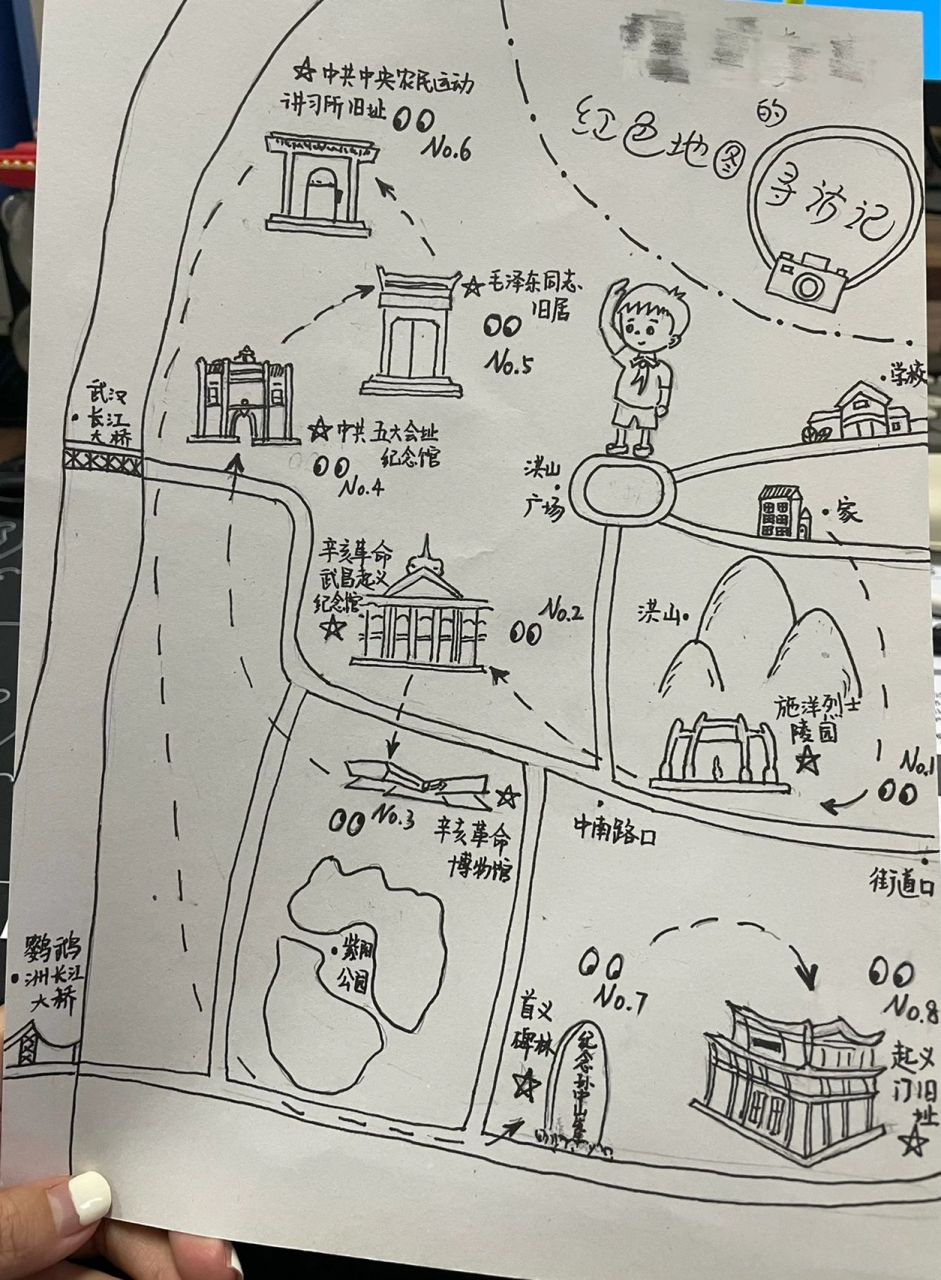 的
红色地图
寻访记
☆中共中央农民运动
讲习所旧址
No.6
☆毛泽东同志
旧居
No.5
·学校
武汉
·长江
大桥
☆中共五大会址
纪念馆
No.4
洪山
广场
·家
辛亥革命
武昌起义
纪念馆
☆
No.2
洪山·
施洋烈士
陵园
☆
No.1
No.3
☆
辛亥革命
博物馆
中南路口
街道口
·紫阳
公园
鹦鹉
·洲长江
大桥
No.7
首义
碑林
☆
纪念孙中山
No.8
起义
门旧
址
☆